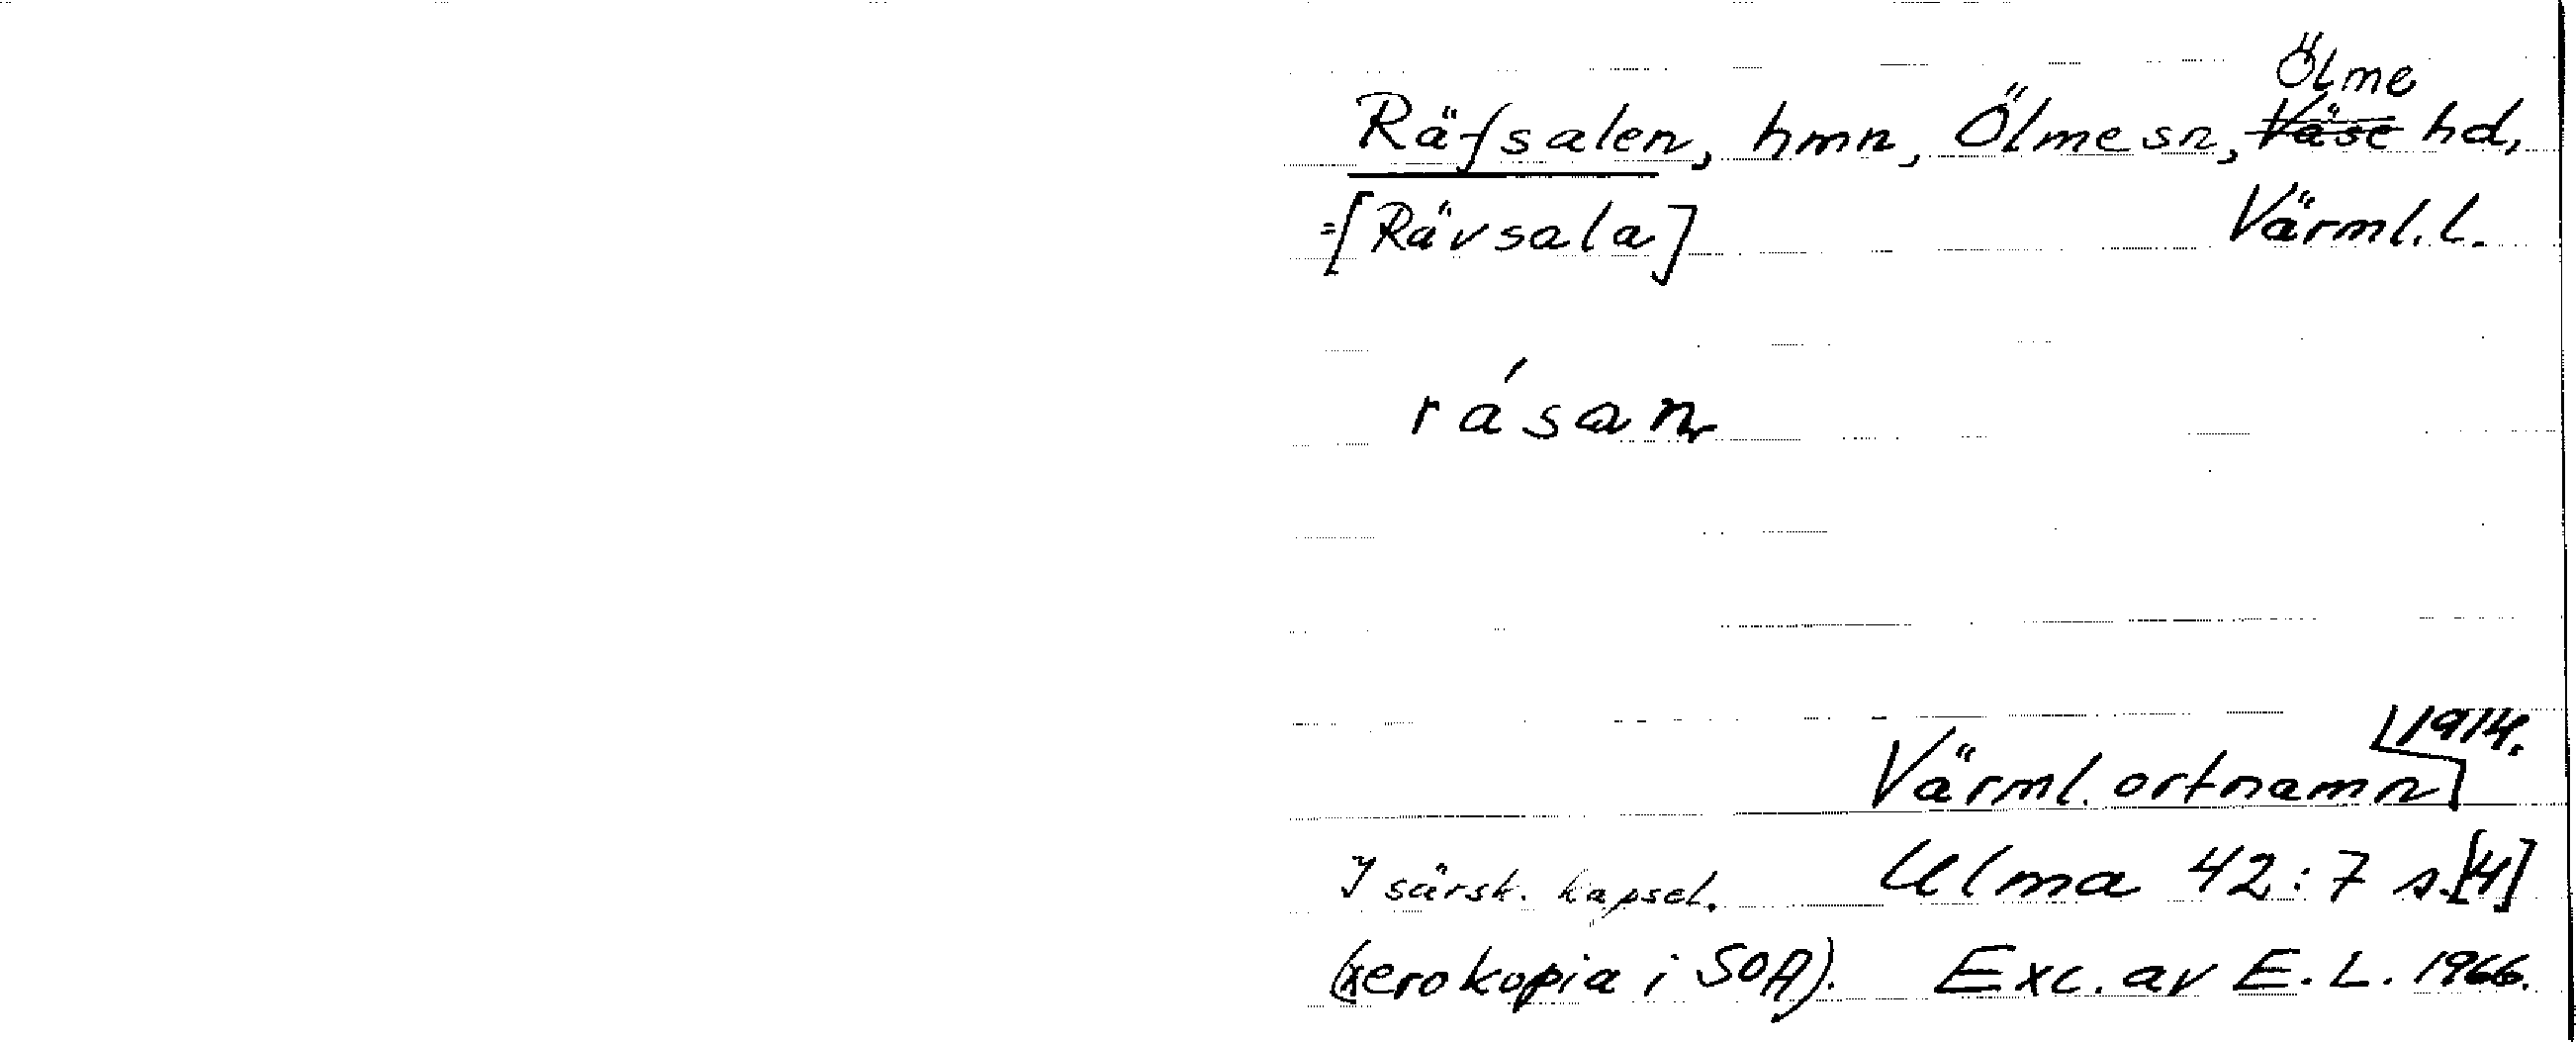 Räfsalen, hmn, Ölme sn, Väse Ölme hd,
=[Rävsala] Värml. l.
rásan
Värml. ortnamn 1914.
I särsk. kapsel. Ulma 42:7 s.[4]
(xerokopia i SOA). Exc. av E. L. 1966.